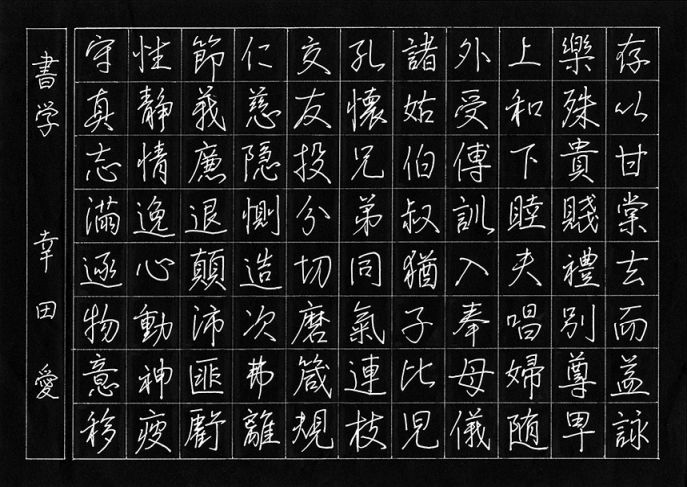 存以甘棠去而益詠
樂殊貴賤禮別尊卑
上和下睦夫唱婦随
外受傅訓入奉母儀
諸姑伯叔猶子比児
孔懐兄弟同氣連枝
交友投分切磨箴規
仁慈隠惻造次弗離
節義廉退顛沛匪虧
性静情逸心動神疲
守真志滿逐物意移
書学 幸田愛